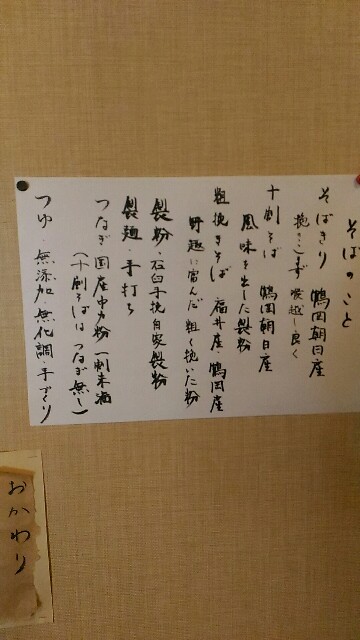 そばのこと
そばきり 鶴岡朝日産
挽きこまず 喉越し良く
十割そば 鶴岡朝日産
風味を出した製粉
粗挽きそば 福井産・鶴岡産
野趣に富んだ 粗く挽いた粉
製粉・石臼手挽自家製粉
製麺・手打ち
つなぎ 国産中力粉 一割未満
(十割そばはつなぎ無し)
つゆ・無添加・無化調・手づくり
おかわり